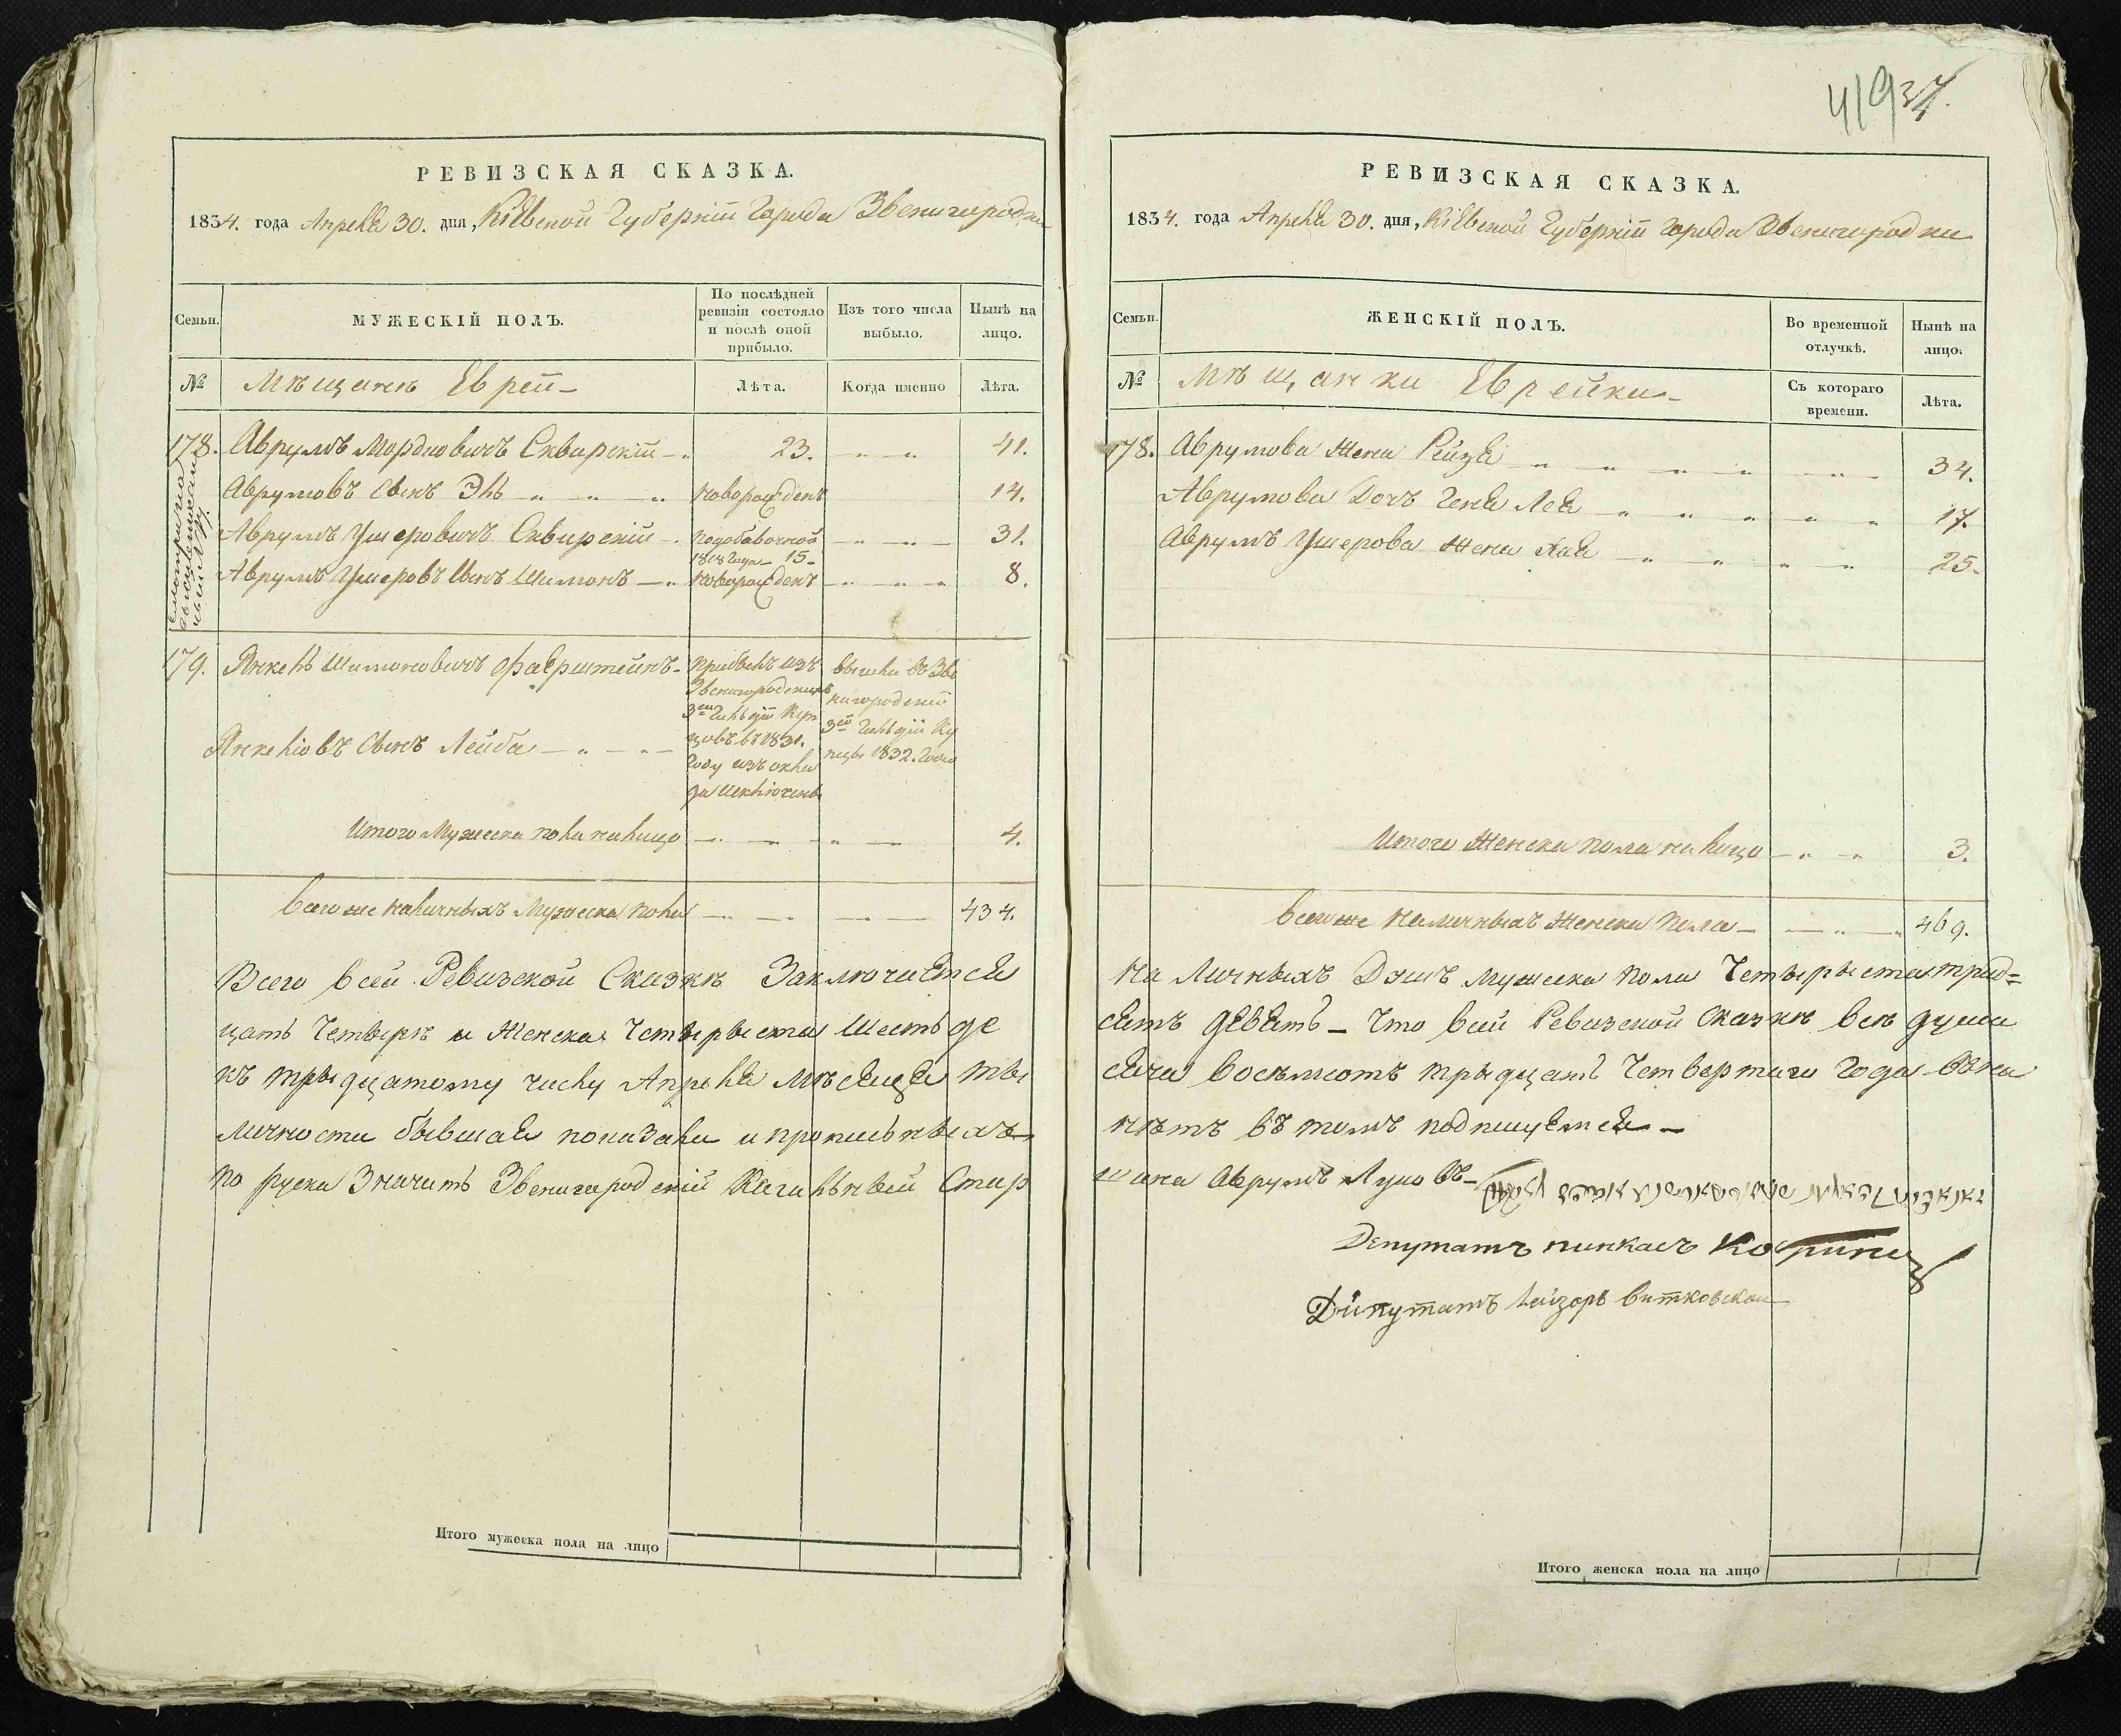 РЕВИЗСКАЯ СКАЗКА.
1834. года Апреля 30. дня, Кіевской Губерніи Города Звенигородки
Семьи.
МУЖЕСКІЙ ПОЛЪ.
По послѣдней
ревизіи состояло
и послѣ оной
прибыло.
Изъ того числа
выбыло.
Нынѣ на
лицо.
№
Мѣщанѣ Евреи
Лѣта.
Когда именно
Лѣта.
178. Аврумъ Мордковичъ Сквирскій 23. 41.
Аврумовъ Сынъ Эль новорожденъ 14.
Аврумъ Ушеровичъ Сквирскій 31.
1818 Года 15
Аврумъ Ушеровъ Сынъ Шимонъ новорожденъ 8.
179. Янкель Шимоновичъ Фаерштейнъ
прибылъ изъ
Звенигородскихъ
3ей Гильдіи Куп
цовъ въ 1831.
Году изъ окла
да исключены
вышли въ Зве
нигородскіи
3ей Гильдіи Ку
пцы 1832. Года
Янкеліовъ Сынъ Лейба
Итого Мужеска пола налицо 4.
Всего же наличныхъ Мужеска пола 434.
Всего всей Ревизской Сказкѣ Заключается
цать Четырѣ и Женска Четырыста Шестьде
къ тридцатому числу Апреля Мѣсяца ты
личности бывшая показаны и прописныхъ
по руски Значитъ Звенигородскій Кагальный Стар
Итого мужеска пола на лицо
41937.
РЕВИЗСКАЯ СКАЗКА.
1834. года Апреля 30. дня, Кіевской Губерніи Города Звенигородки
Семьи.
ЖЕНСКІЙ ПОЛЪ.
Во временной
отлучкѣ.
Нынѣ на
лицо.
№
Мѣщанки Еврейки
Съ котораго
времени.
Лѣта.
178. Аврумова Жена Рейзя 34.
Аврумова Дочъ Геня Лея 17.
Аврумъ Ушерова Жена Хая 25.
Итого Женска пола на лицо 3.
Всего же наличныхъ Женска пола 469.
На Личныхъ Душъ мужеска пола Четырыста трид=
сятъ девять Что всей Ревизской Сказкѣ всѣ души
сяча восемсотъ тридцать Четвертаго Года въ на
нѣтъ въ томъ подпищемся
шина Аврумъ
Депутатъ пинкасъ
Дипутатъ Лейзоръ витковской
Итого женска пола на лицо